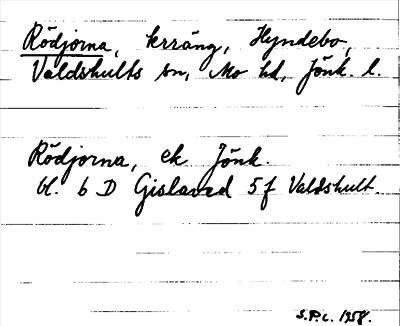 Rödjorna, krräng, Hyndebo,
Valdshults sn, Mo hd, Jönk. l.
Rödjorna, ek Jönk.
bl. 6 D Gislaved 5 f Valdshult.
S.P.c. 1958.